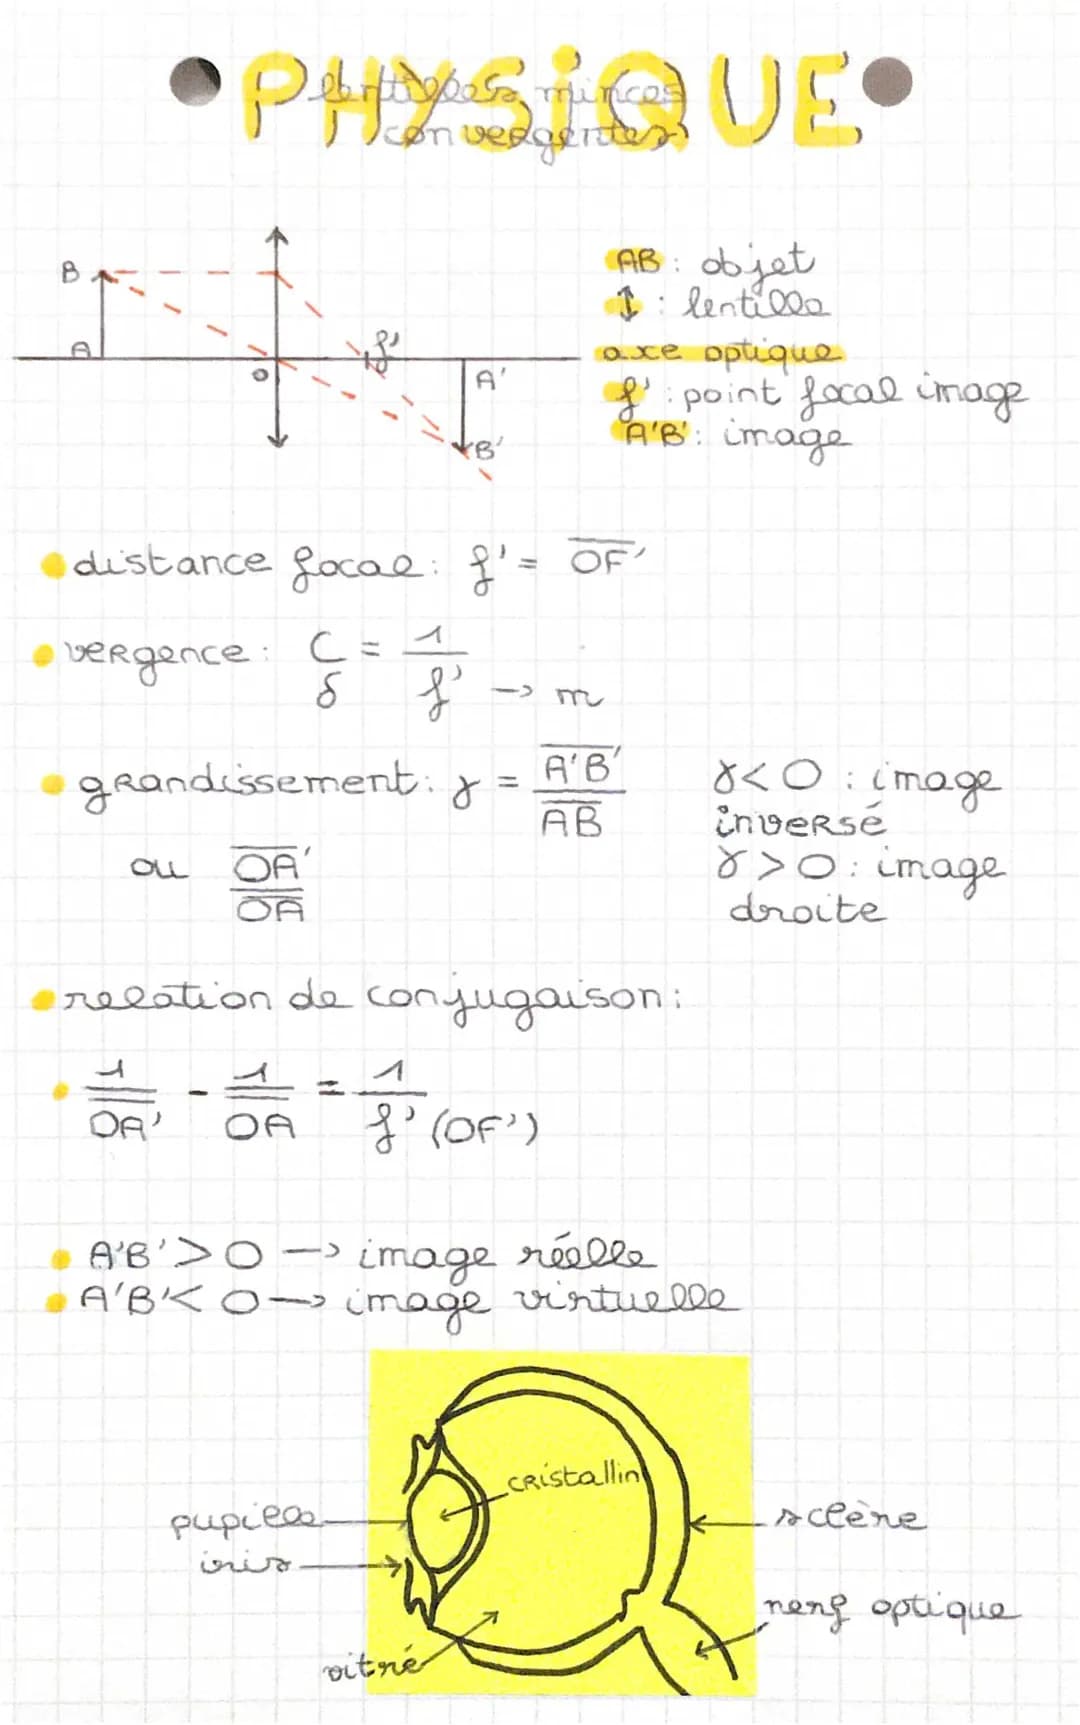 • PHYSIQUE •
lentilles minces
convergentes
B
A
O
f'
A'
B'
AB : objet
↕ : lentille
axe optique
f' : point focal image
A'B' : image
• distance focale : f' = OF'
• vergence : C/δ = 1/f' → m
• grandissement : γ = A'B'/AB
ou OA'/OA
γ<0 : image
inversé
γ>0 : image
droite
• relation de conjugaison :
• 1/OA' - 1/OA = 1/f' (OF')
• A'B' > 0 → image réelle
• A'B' < 0 → image virtuelle
cristallin
pupille
iris
sclère
nerf optique
vitré